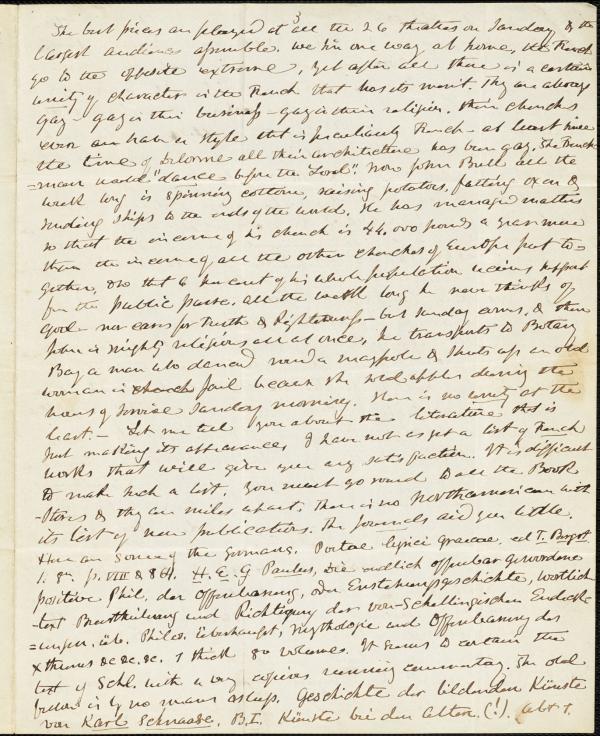 3
The best pieces are played at all the 26 theatres on Sunday & the
largest audiences assemble. We sin one way at home, the French
go to the opposite extreme, yet after all there is a certain
unity of character in the French that has its merit. They are always
gay – gay in their business – gay in their religion. Their churches
even are built in style that is peculiarly French – at least since
the time of Delorme all their architecture has been gay. The French-
=man would "dance before the Lord". Now John Bull all the
week long is spinning cotton, raising potatoes, fatting oxen &
sending ships to the ends of the world. He has managed matters
so that the income of his church is 44,000 pounds a year more
than the income of all the other churches of Europe put to-
gether, & so that 6 per cent of his whole population receives support
from the public purse. All the week long he never thinks of
God – nor cares for truth & Righteousness – but Sunday comes, & then
John is mighty religious all at once, he transports to Botany
Bay a man who danced round a maypole & shuts up an old
woman in church jail because she sold apples during the
hours of service Sunday morning. There is no unity at the
least. – Let me tell you about the literature that is
just making its appearance. I have not as yet a list of French
works that will give you any satisfaction. It is difficult
to make such a list. You must go round to all the Book
-stores & they are miles apart: there is no Northamerican with
its list of new publications. The Journals aid you little.
Here are some of the Germans. Poetae lyrici graecae, ed T. Bergk
1. 8vo. p. VIII & 861. H. E. G Paulus, Die endlich offenbar gewordene
positive Phil. der Offenbarung, oder Enstehungsgeschichte, wörtlich
-text Beurtheilung und Richtigung der von-Schellingischen Entdeck-
=ungen. üb. Philos. überhaupt, Mythologie und Offenbarung des
x thums &c &c. &c. 1 thick 8o volumes. It seems to contain the
text of Schl. with a very copious running commentary. The old
fellow is by no means asleep. Geschichte der bildenden Künste
von Karl Schnaase. B. I. Künste bei den Alten. (!). Abt 1.